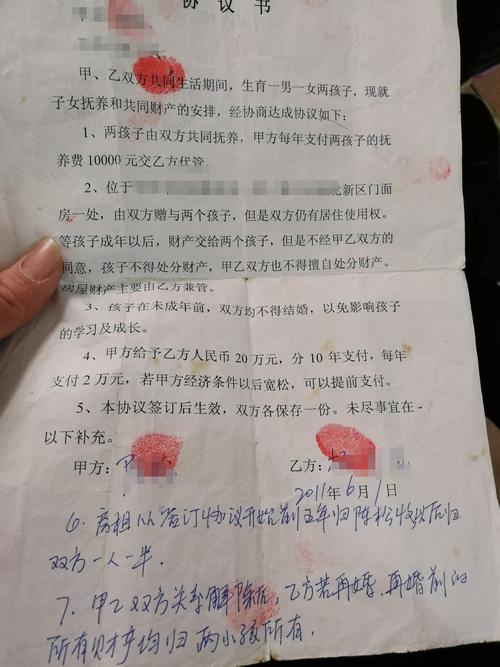 协议书
甲、乙双方共同生活期间，生育一男一女两孩子，现就
子女抚养和共同财产的安排，经协商达成协议如下：
1、两孩子由双方共同抚养，甲方每年支付两孩子的抚
养费10000元交乙方代管。
2、位于 北新区门面
房一处，由双方赠与两个孩子，但是双方仍有居住使用权。
等孩子成年以后，财产交给两个孩子，但是不经甲乙双方的
同意，孩子不得处分财产，甲乙双方也不得擅自处分财产。
房屋财产主要由乙方兼管。
3、孩子在未成年前，双方均不得结婚，以免影响孩子
的学习及成长。
4、甲方给予乙方人民币20万元，分10年支付，每年
支付2万元，若甲方经济条件以后宽松，可以提前支付。
5、本协议签订后生效，双方各保存一份。未尽事宜在
以下补充。
甲方： 乙方：
2011年6月1日
6、房租从签订协议开始前五年归陈 收以后归
双方一人一半．
7、甲乙双方关系解除后，乙方若再婚，再婚前的
所有财产均归两小孩所有．